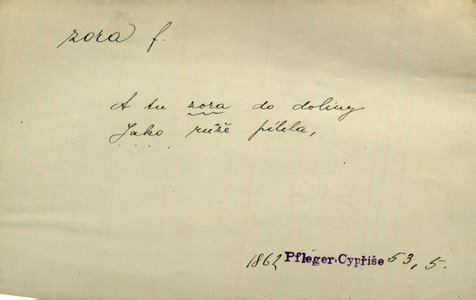 zora f.
A tu zora do doliny
Jako růže pílila,
1862 Pfleger, Cypřiše 53, 5.